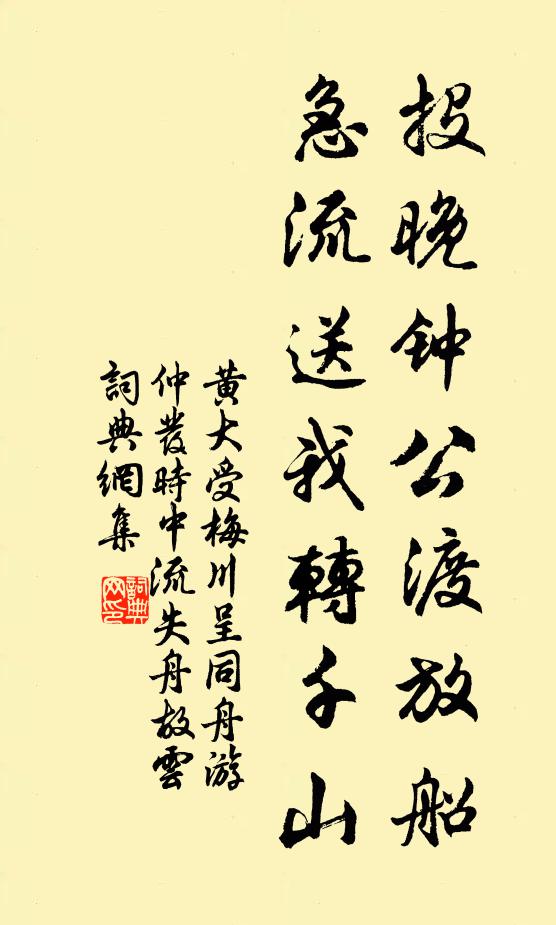 投晚钟公渡放船
急流送我轉千山
黄大受梅川呈同舟游
仲發時中流失舟故雲
詞典網集
詞典网印